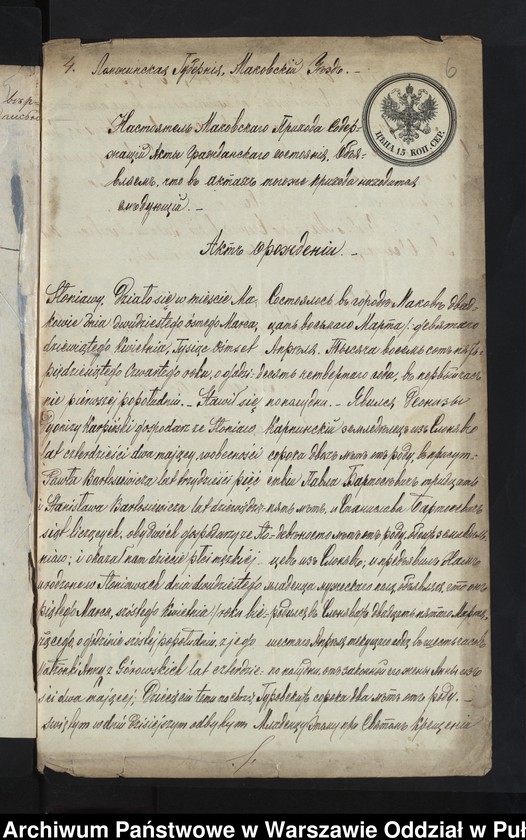 4. Ломжинская Губернія, Маковскій Уѣздъ. —
6
ЦѢНА 15 КОП. СЕР.
Настоятель Маковскаго Прихода Содер-
жащій Акты Гражданскаго состоянія, Объя-
вляемъ, что въ актахъ тогоже прихода находится
слѣдующій. —
Актъ о рожденіи. —
Słoniawy, Działo się w mieście Ma-
kowie dnia dwudziestego ósmego Marca,
dziewiątego Kwietnia, Tysiąc ośmset
pięćdziesiątego czwartego roku, o godzi-
nie pierwszej popołudniu. — Stawił się
Dyonizy Karpiński gospodarz ze Słoniaw
lat czterdzieści dwa mający, w obecności
Pawła Bartosiewicza lat trzydzieści pięć
i Stanisława Bartosiewicza lat dziewięćdzie-
siąt liczących, obydwóch gospodarzy ze Sło-
niaw; i okazał nam dziecię płci męzkiej
urodzone w Słoniawach dnia dwudziestego
piątego Marca, szóstego Kwietnia roku bie-
żącego, o godzinie szóstej popołudniu, z jego
małżonki Anny z Górowskich lat czterdzie-
ści dwa mającej; Dziecięciu temu na chrzcie
świętym w dniu dzisiejszym odbytym
Состоялось въ городѣ Маковѣ двад-
цать восьмаго Марта /: девятаго
Апрѣля. Тысяча восемь сотъ пять-
десятъ четвертаго года, въ первый часъ
по полудни. — Явился Деонизы
Карпинскій земледѣлецъ изъ Слонявъ
сорока двухъ лѣтъ отъ роду, въ присут-
ствіи Павла Бартосевичъ тридцать
пять лѣтъ, и Станислава Бартосевичъ
девяносто лѣтъ отъ роду, обоихъ земледѣль-
цевъ изъ Слонявъ; и предъявилъ Намъ
младенца мужескаго пола, объявляя, что онъ
родился въ Слонявахъ двадцать пятаго Марта,
шестаго Апрѣля текущаго года, въ шесть часовъ
по полудни, отъ законной его жены Анны изъ
Гуровскихъ сорока два лѣтъ отъ роду. —
Младенцу этому при Святомъ Крещеніи
Archiwum Państwowe w Warszawie Oddział w Puł